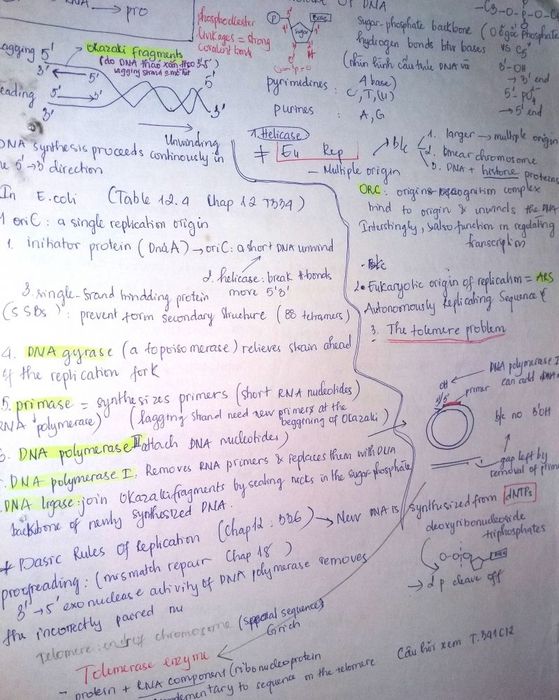 RNA → pro
OF DNA
phosphodiester
linkages = strong
covalent bonds
P
Base
sugar
sugar-phosphate backbone
hydrogen bonds btw bases
-C3-O-P-O-
vs C5'
3'-OH
→ 3' end
5'-PO4
→ 5' end
4 base
pyrimidines : C, T, (U)
purines : A, G
lagging 5'
3'
Okazaki fragments
5'
5'
leading
3'
3'
Unwinding
DNA synthesis proceeds continously in
5' → 3' direction
1. Helicase
≠ Eu Rep
- Multiple origin
b/c
1. larger → multiple origin
2. linear chromosome
3. DNA + histone proteins
ORC: origin recognition complex
bind to origin & unwinds the DNA
Interstingly, also function in regulating
transcription
In E.coli (Table 12.4 Chap 12 T334)
1 oriC: a single replication origin
1. initiator protein (DnaA) → oriC: a short DNA unwind
2. helicase: break H bonds
move 5'3'
3. single-strand bindding protein
(SSBs) : prevent form secondary structure (as tetramers)
4. DNA gyrase (a topoisomerase) relieves strain ahead
of the replication fork
5. primase = synthesizes primers (short RNA nucleotides)
RNA polymerase) (lagging strand need new primers at the
beggining of Okazaki)
DNA polymerase III attach DNA nucleotides)
DNA polymerase I: Removes RNA primers & replaces them with DNA
DNA ligase: join Okazaki fragments by sealing nicks in the sugar phosphate
backbone of newly synthesized DNA.
2. Eukaryotic origin of replication = ARS
Autonomously Replicating Sequence
3. The telomere problem
OH
DNA polymerase I
can add DNA
primer
b/c no 3'OH
gap left by
removal of primer
* Basic Rules of Replication (Chap12: 336) → New DNA is synthesized from dNTPs
deoxyribonucleoside
triphosphates
→ 2 p cleave off
proofreading: (mismatch repair Chap 18)
3' → 5' exonuclease activity of DNA polymerase removes
the incorrectly paired nu
Telomere: end of chromosome (special sequence)
G rich
Telomerase enzyme
- protein + RNA component (ribonucleoprotein
complementary to sequence in the telomere
Câu hỏi xem T.341 C12